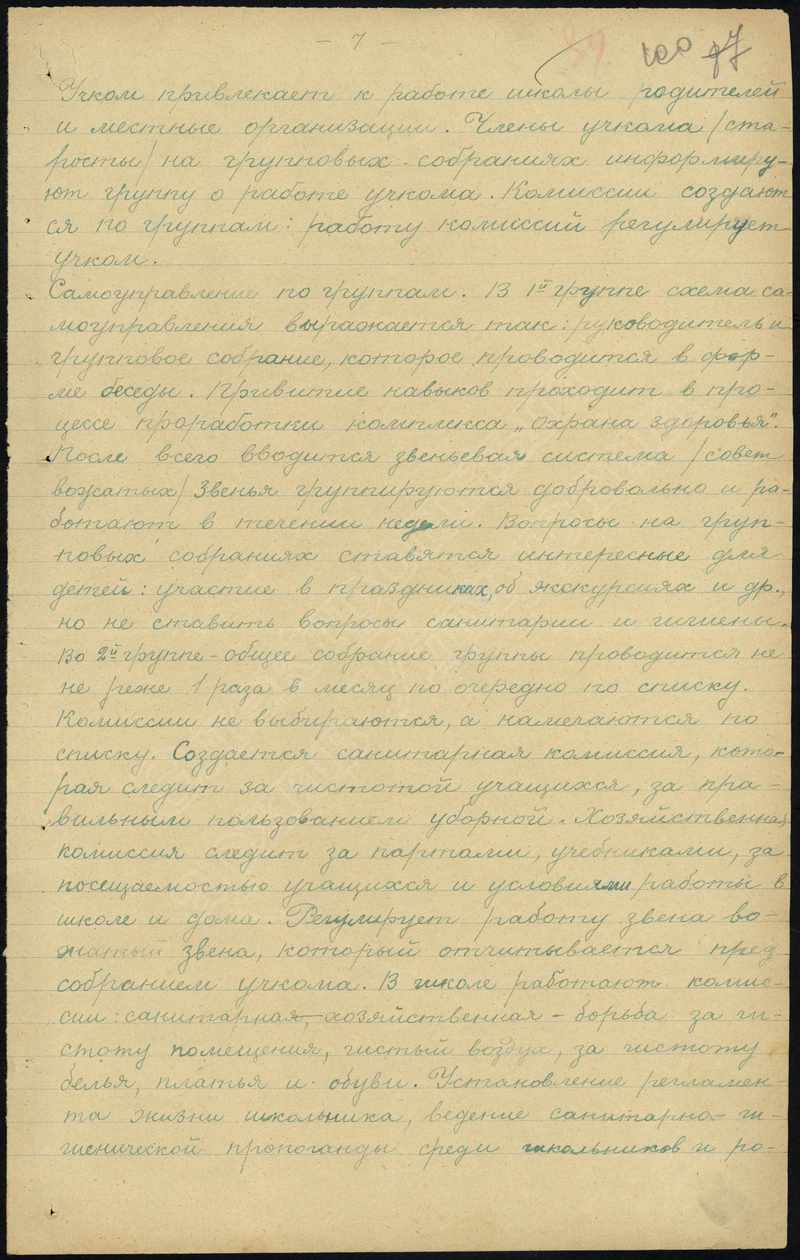 - 7 -
100 47
Учком привлекает к работе школы родителей
и местные организации. Члены учкома /ста-
росты/ на групповых собраниях информиру-
ют группу о работе учкома. Комиссии создают
ся по группам: работу комиссий регулирует
учком.
Самоуправление по группам. В 1й группе схема са-
моуправления выражается так: руководитель и
групповое собрание, которое проводится в фор-
ме беседы. Привитие навыков проходит в про-
цессе проработки комплекса „охрана здоровья".
После всего вводится звеньевая система /совет
вожатых/ Звенья группируются добровольно и ра-
ботают в течении недели. Вопросы на груп-
повых собраниях ставятся интересные для
детей: участие в праздниках, об экскурсиях и др.,
но не ставить вопросы санитарии и гигиены.
Во 2й группе - общее собрание группы проводится не
не реже 1 раза в месяц по очередно по списку.
Комиссии не выбираются, а намечаются по
списку. Создается санитарная комиссия, кото-
рая следит за чистотой учащихся, за пра-
вильным пользованием уборной. Хозяйственная
комиссия следит за партами, учебниками, за
посещаемостью учащихся и условиями работы в
школе и дома. Регулирует работу звена во-
жатый звена, который отчитывается пред
собранием учкома. В школе работают комис-
сии: санитарная, хозяйственная - борьба за чи-
стоту помещения, чистый воздух, за чистоту
белья, платья и обуви. Установление регламен-
та жизни школьника, ведение санитарно-ги-
гиенической пропоганды среди школьников и ро-